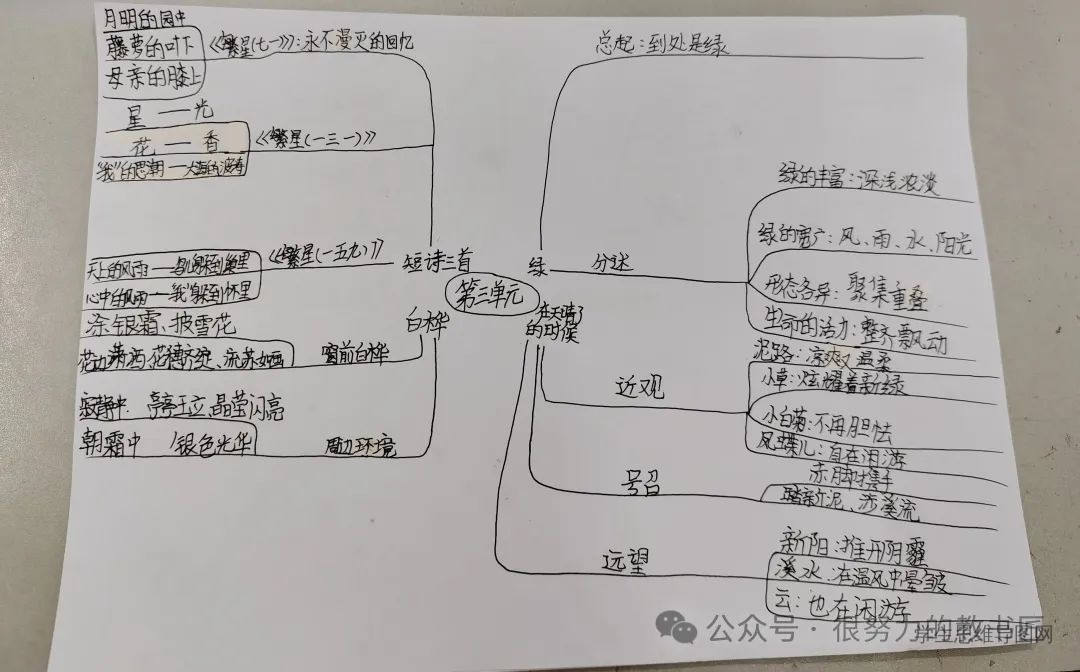 月明的园中
藤萝的叶下
母亲的膝上
《繁星(七一)》:永不漫灭的回忆
星——光
花——香
"我"的思潮——大海的波涛
《繁星(一三一)》
天上的风雨——鸟儿躲到巢里
心中的风雨——"我"躲到怀里
《繁星(一五九)》
短诗三首
涂银霜、披雪花
花边潇洒、花穗齐绽、流苏如画
窗前白桦
寂静中: 亭亭玉立、晶莹闪亮
朝霞中 银色光华
周边环境
白桦
第三单元
绿
总起:到处是绿
分述
绿的丰富:深浅浓淡
绿的宽广:风、雨、水、阳光
形态各异:聚集重叠
生命的活力:整齐飘动
在天晴了
的时候
近观
泥路:凉爽又温柔
小草:炫耀着新绿
小白菊:不再胆怯
凤蝶儿:自在闲游
号召
赤脚携手
踏新泥、涉溪流
远望
新阳:推开阴霾
溪水:在温风中晕皱
云:也在闲游
公众号·很努力的教书匠
学生思维导图网